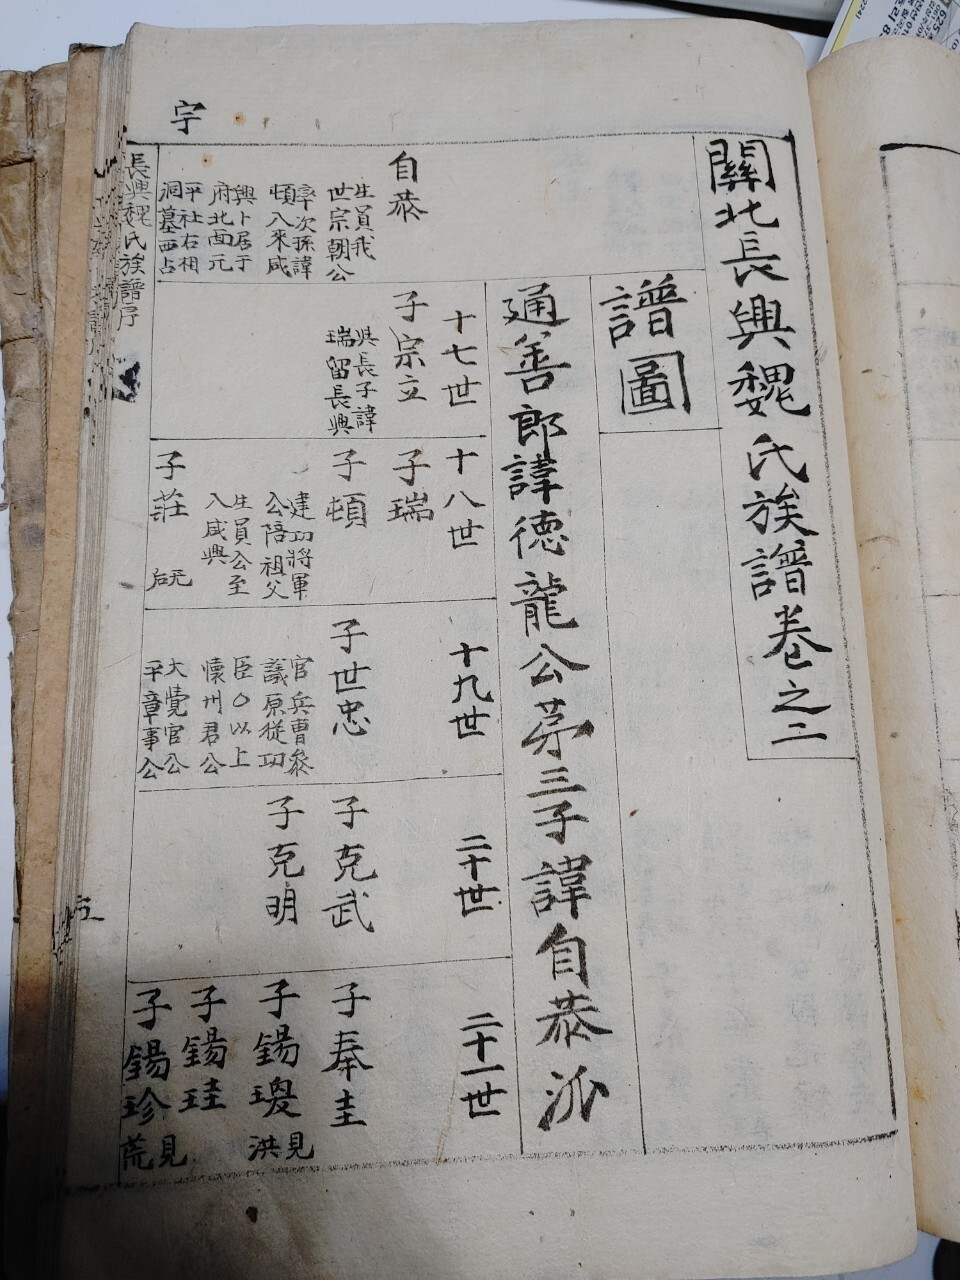 關北長興魏氏族譜卷之二
譜圖
通善郞諱德龍公苐三子諱自恭派
自恭
生員我
世宗朝公
率次孫諱
頓入來咸
興卜居于
府北面元
平社右相
洞墓西占
十七世
子宗立
長子諱
瑞留長興
十八世
子瑞
子頓
建功將軍
公陪祖父
生員公至
入咸興
子莊
十九世
子世忠
官兵曹叅
議原從功
臣○以上
懷州君公
大覺官公
平章事公
二十世
子克武
子克明
二十一世
子奉圭
子錫瑗
見洪
子錫珪
子錫珍
見荒
宇
長興魏氏族譜序